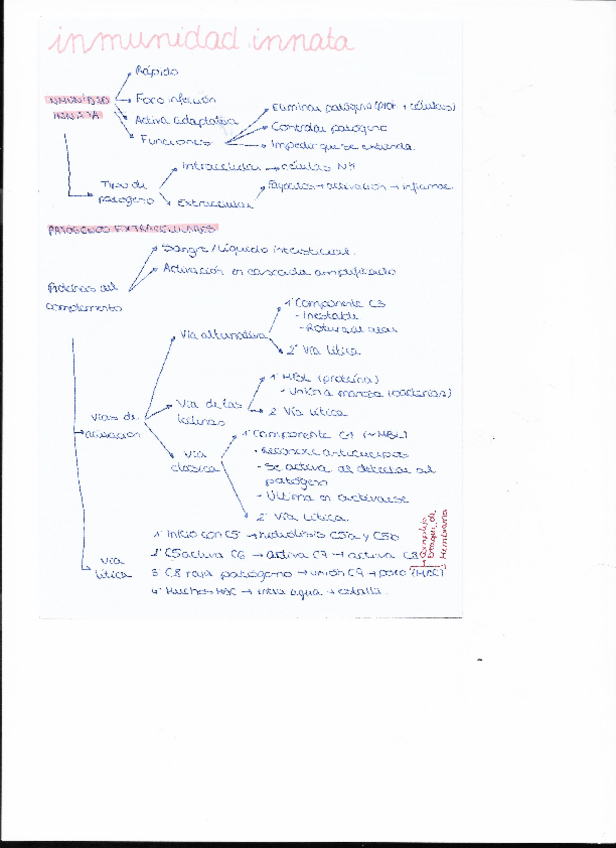 inmunidad innata
Rápido
INMUNIDAD INNATA
Foco infección
Activa adaptativa
Eliminar patógeno (prot + células)
Funciones
Controlar patógeno
Impedir que se extienda
Tipo de patógeno
Intracelular → células NK
Extracelular
Fagocitos → activación → inflamac.
PATÓGENOS EXTRACELULARES
Proteínas del complemento
Sangre / Líquido intersticial.
Activación en cascada amplificada
Vías de activación
Vía alternativa
1º Componente C3
- Inestable
- Rotura al azar
2º Vía lítica
Vía de las lectinas
1º MBL (proteína)
- Unión a manosa (bacterias)
2º Vía lítica
Vía clásica
1º Componente C1 (~MBL)
- Reconoce anticuerpos
- Se activa al detectar al patógeno
- Última en activarse
2º Vía lítica.
Vía lítica
1º Inicio con C5 → hidrólisis C5a y C5b
2º C5 activa C6 → activa C7 → activa C8
3º C8 raja patógeno → unión C9 → poro (MAC)
4º Muchos MAC → entra agua → estalla.
Complejo Ataque de Membrana